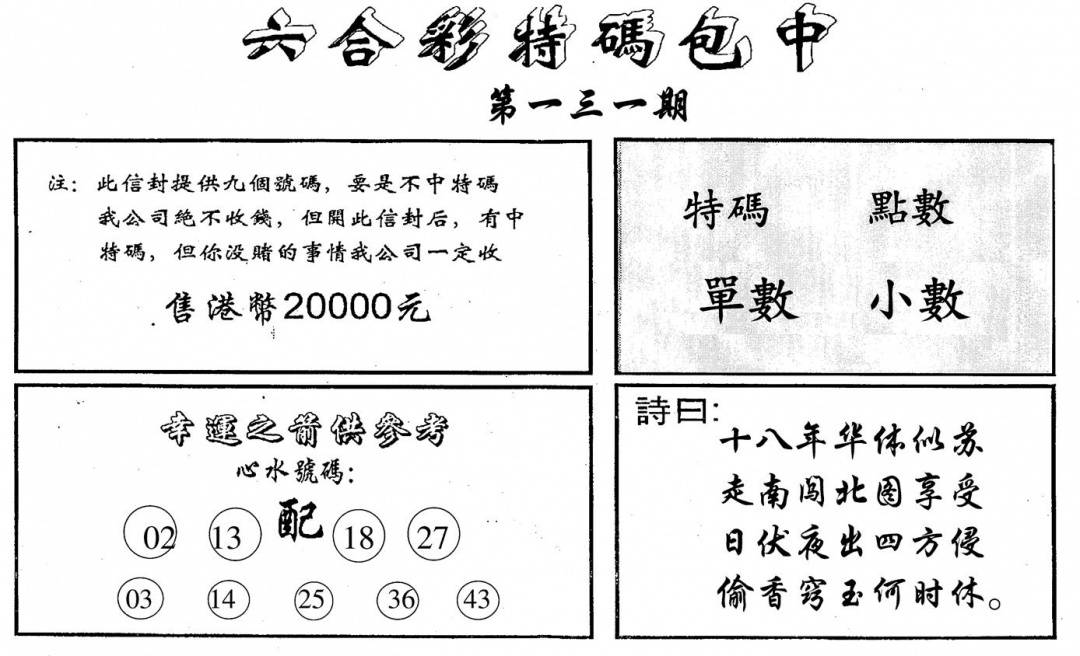 六合彩特碼包中
第一三一期
注: 此信封提供九個號碼, 要是不中特碼
我公司絕不收錢, 但開此信封后, 有中
特碼, 但你没賭的事情我公司一定收
售港幣20000元
特碼 點數
單數 小數
幸運之箭供參考
心水號碼:
02 13 配 18 27
03 14 25 36 43
詩曰:
十八年华体似苏
走南闯北图享受
日伏夜出四方侵
偷香窍玉何时休。